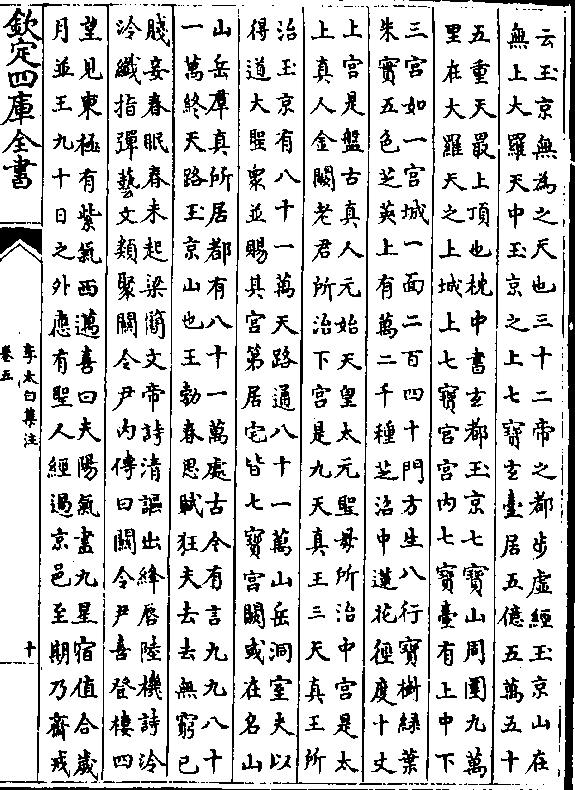 云玉京無為之天也三十二帝之都步虛經玉京山在
無上大羅天中玉京之上七寶玄臺居五億五萬五十
五重天最上頂也枕中書玄都玉京七寶山周圍九萬
里在大羅天之上城上七寶宮宮內七寶臺有上中下
三宮如一宮城一面二百四十門方生八行寶樹綠葉
朱實五色芝英上有萬二千種芝沼中蓮花徑度十丈
上宮是盤古真人元始天皇太元聖母所治中宮是太
上真人金闕老君所治下宮是九天真王三天真王所
治玉京有八十一萬天路通八十一萬山岳洞室夫以
得道大聖衆並賜其宮第居宅皆七寶宮闕或在名山
山岳羣真所居都有八十一萬處古今有言九九八十
一萬終天路玉京山也王勃春思賦狂夫去去無窮已
賤妾春眠春未起梁簡文帝詩清謳出絳唇陸機詩泠
泠纖指彈藝文類聚關令尹內傳曰關令尹喜登樓四
望見東極有紫氣西邁喜曰夫陽氣盡九星宿值合歲
月並王九十日之外應有聖人經過京邑至期乃齋戒
欽定四庫全書
李太白集注
卷五
十